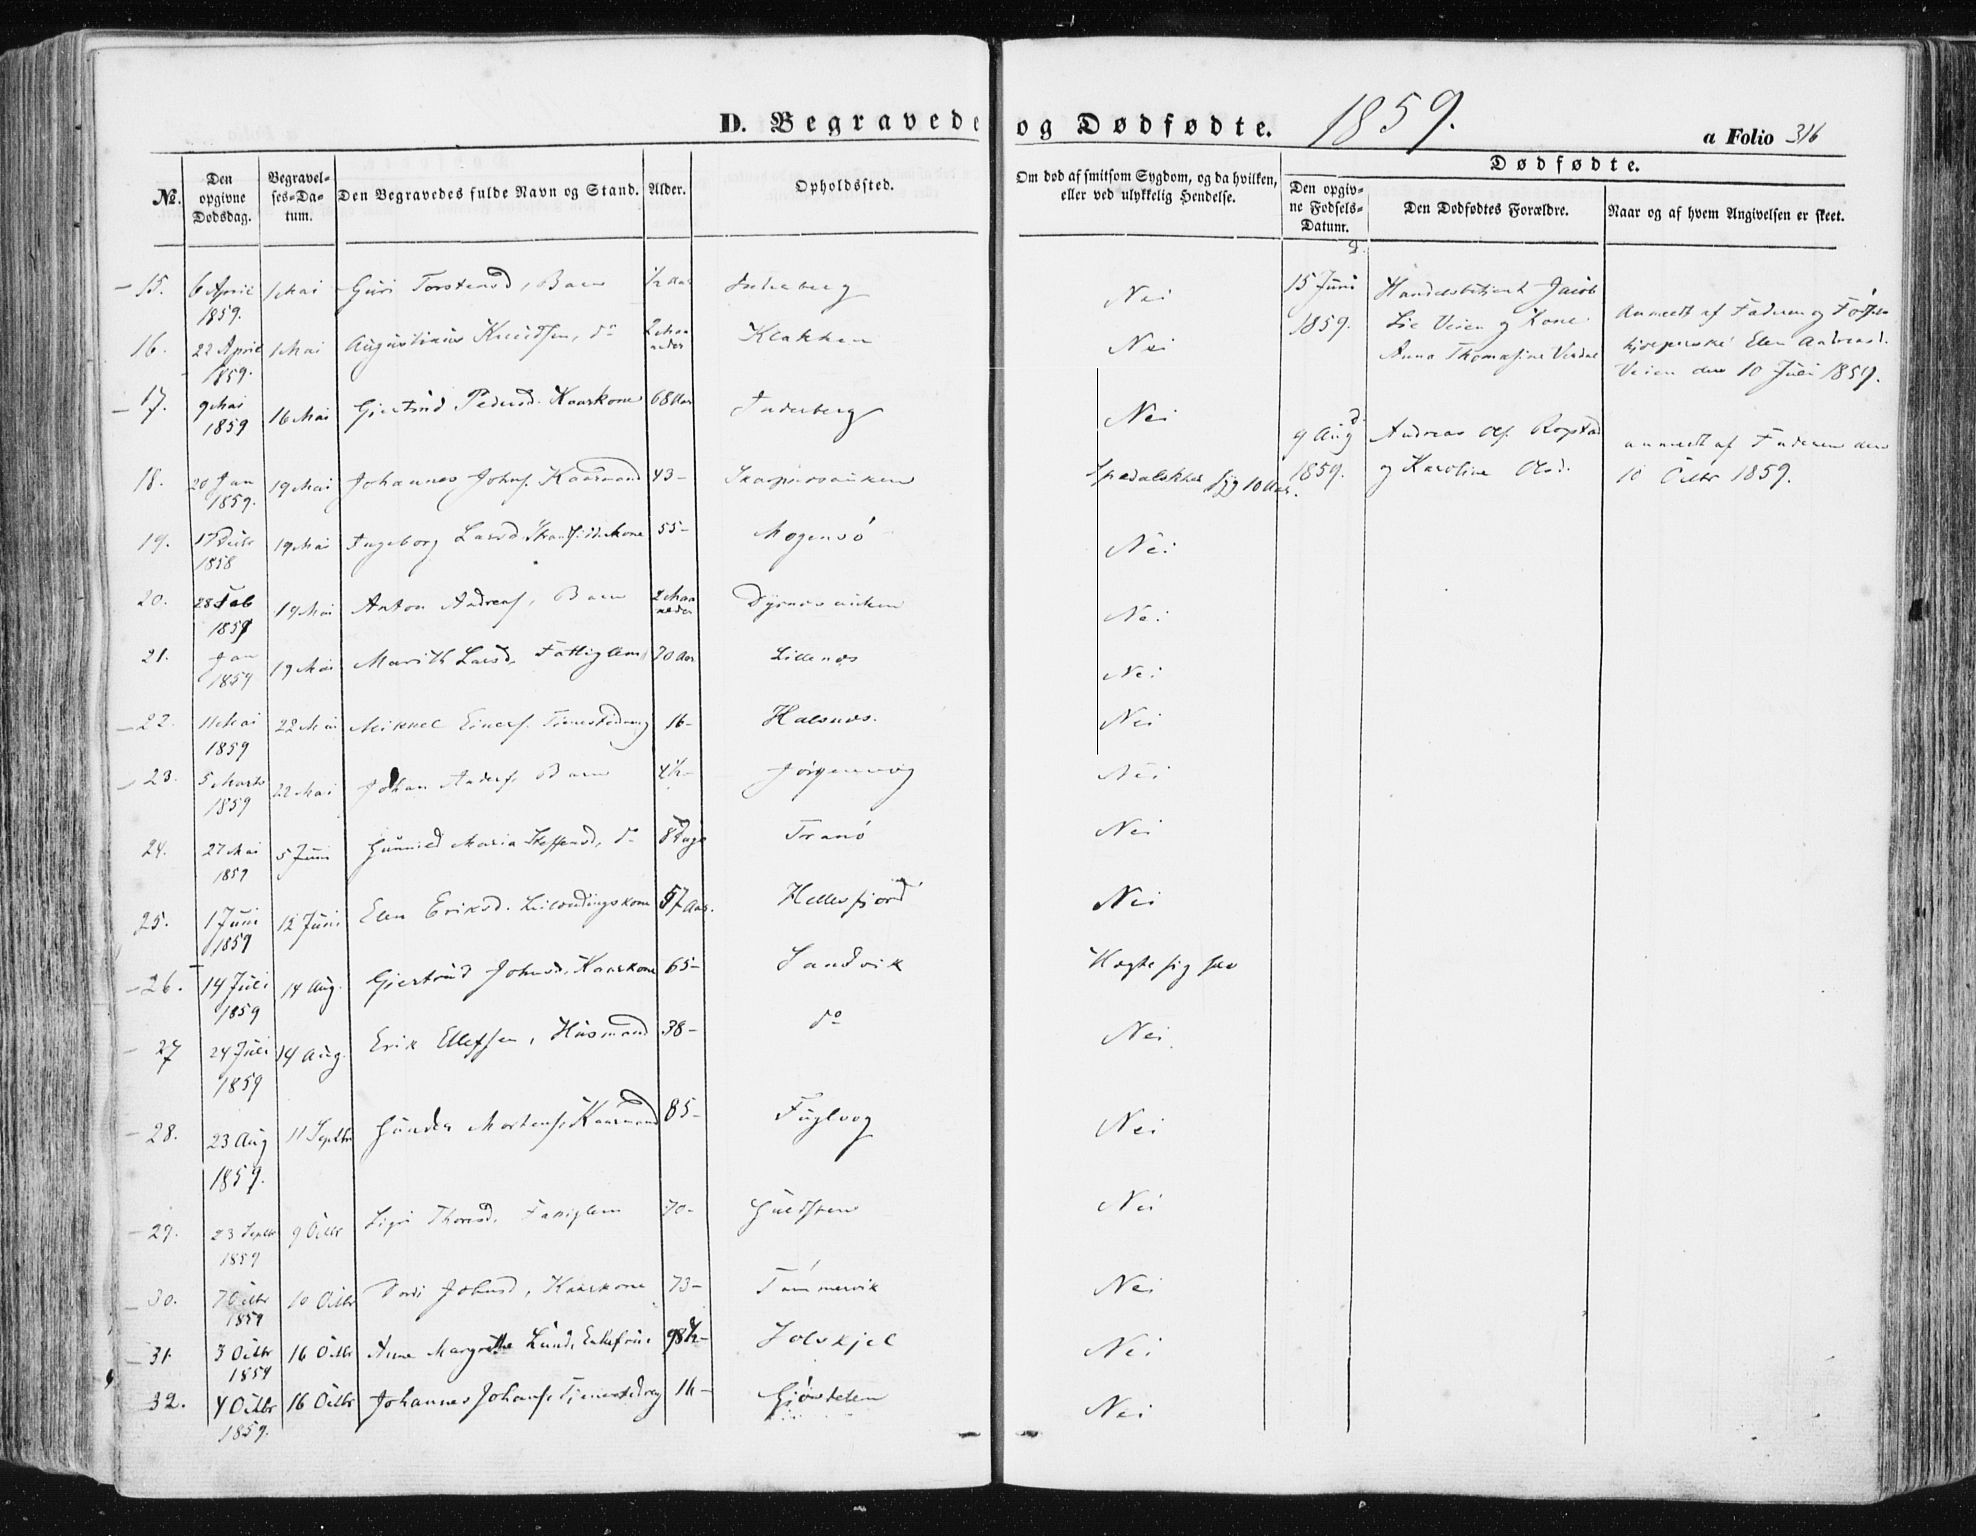 D. Begravede og Dødfødte. 1859.
a Folio 316
No.
Den opgivne Dødsdag.
Begravelses-Datum.
Den Begravedes fulde Navn og Stand.
Alder.
Opholdssted.
Om død af smitsom Sygdom, og da hvilken, eller ved ulykkelig Hendelse.
Dødfødte.
Den opgivne Fødsels-Datum.
Den Dødfødtes Forældre.
Naar og af hvem Angivelsen er skeet.
15. 6 April 1859. 1 Mai Guri Torstensd, Barn 1/2 Aar Inderberg Nei
16. 22 April 1859. 1 Mai Augustinus Knudsen, do 2 Maaneder Klakken Nei
17. 9 Mai 1859 16 Mai Giertrud Pedersd. Kaarkone 68 Aar Inderberg Nei
18. 20 Jan 1859. 19 Mai Johannes Johns. Kaarmand 43 - Spedalskhed 10 Aar.
19. 1858 19 Mai Ingeborg Larsd 55 - Mogensö Nei
20. 28 Feb 1859 19 Mai Anton Andreas, Barn 2 Maaneder Nei
21. Jan 1859 19 Mai Marith Larsd. Fattiglem 70 Aar Lillenes Nei
22. 11 Mai 1859 22 Mai Mikael Einers. Tienestedreng 16 - Halsnes. Nei
23. 5 Marts 1859 22 Mai Johan Anders. Barn 4 1/2 - Jörgenvog Nei
24. 27 Mai 1859 5 Juni Gunnild Maria Steffensd, do 8 Dage Tranö Nei
25. 1 Juni 1859 12 Juni Elen Eriksd. Leilændingskone 57 Aar. Hellesfjord Nei
26. 14 Juli 1859 14 Aug. Giertrud Johnsd. Kaarkone 65 - Sandvik
27 24 Juli 1859 14 Aug. Erik Ellefsen, Husmand 38 - do Nei.
28. 23 Aug 1859. 11 Septbr Gunder Mortens. Kaarmand 85 - Fuglvog Nei
29. 23 Septbr 1859 9 Octbr Thoresd. Fattiglem 70 - Guldsten Nei
30. 7 Octbr 1859 10 Octbr Dordi Johnsd, Kaarkone 73 - Tömmervik Nei
31. 3 Octbr 1859 16 Octbr Anne Margrethe Lund, Enkefrue 98 1/2 - Solskjel Nei
32. 4 Octbr 1859. 16 Octbr Johannes Johans. Tienestedreng 16 - Nei
2.
15 Juni 1859. Handelsbetjent Jacob Lie Veien og Kone Anna Thomasine
anmeldt af Faderen og Elen Andreasd. Veien den 10 Juli 1859.
d
9 Aug 1859. Andreas Ols. Ropstad og Karoline Olsd.
anmeldt af Faderen den 10 Octbr 1859.